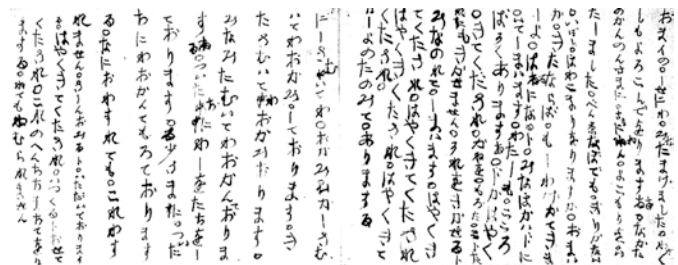 おまイの。しせにわ。みなたまけました。わたく
しもよろこんでをりまする。なかた
のかんのんさまに。さまにねん。よこもりを。いたし
たしました。べん京なぼでも。きりかない
。いぼし。ほわこまりをりますか。おまい
か。きたならば。もしわけかてきま
しよ。はるになるト。みなほかいドに
。いてしまいます。わたしも。こころ
ぼそくありまする。ドカはやく
。きてくだされ。かねを。もろた。こト
たれにもきかせません。それをきかせるト
みなのれて。しまいます。はやくき
てくたされ。はやくきてくたされ
はやくきてくたされ。はやくき
てくたされ。
いしよのたのみて。ありまする
にしさむいてわ。おかみ。ひかしさむ
いてわおかみ。しております。き
たさむいてわおかみおります。
みなみたむいてわおかんておりま
する。ついたちにわしおたちをし
ております。ゐ少さまに。ついた
ちにわおかんてもろております
る。なにおわすれても。これわす
れません。さしんおみるト。いただいておりまする
。はやくきてくたされ。いつくるトおせて
くたされ。これのへんちちまちてをり
まする。ねてもねむられません